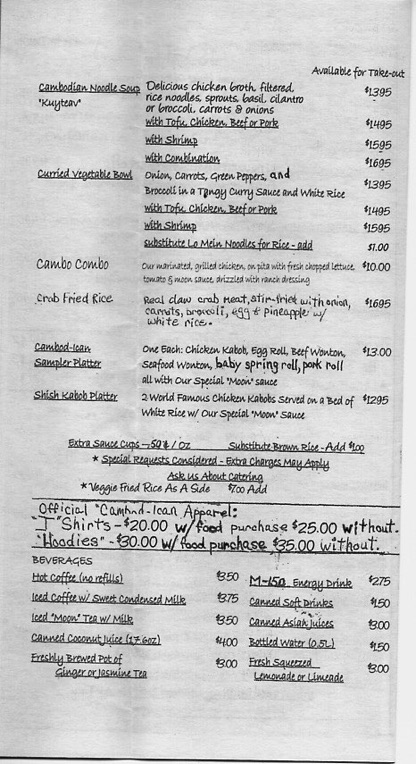 Available for Take-out
Cambodian Noodle Soup Delicious chicken broth, filtered, $1395
"Kuyteav" rice noodles, sprouts, basil, cilantro
or broccoli, carrots & onions
with Tofu, Chicken, Beef or Pork $1495
with Shrimp $1595
with Combination $1695
Curried Vegetable Bowl Onion, Carrots, Green Peppers, and $1395
Broccoli in a Tangy Curry Sauce and White Rice
with Tofu, Chicken, Beef or Pork $1495
with Shrimp $1595
substitute Lo Mein Noodles for Rice - add $1.00
Cambo Combo Our marinated, grilled chicken, on pita with fresh chopped lettuce, $10.00
tomato & moon sauce, drizzled with ranch dressing
Crab Fried Rice Real claw crab meat, stir-fried with onion, $1695
carrots, broccoli, egg & pineapple w/
white rice.
Cambod-ican One Each: Chicken Kabob, Egg Roll, Beef Wonton, $13.00
Sampler Platter Seafood Wonton, baby spring roll, pork roll
all with Our Special "Moon" sauce
Shish Kabob Platter 2 World Famous Chicken Kabobs Served on a Bed of $1295
White Rice w/ Our Special "Moon" Sauce
Extra Sauce Cups - .50¢ / Oz Substitute Brown Rice - Add $1.00
* Special Requests Considered - Extra Charges May Apply
Ask Us About Catering
* Veggie Fried Rice As A Side $7.00 Add
Official "Cambod-Ican Apparel:
"T"Shirts - $20.00 w/food purchase $25.00 without.
"Hoodies" - $30.00 w/food purchase $35.00 without.
BEVERAGES
Hot Coffee (no refills) $350 M-150 Energy Drink $275
Iced Coffee w/ Sweet Condensed Milk $375 Canned Soft Drinks $150
Iced "Moon" Tea w/ Milk $350 Canned Asian Juices $300
Canned Coconut Juice (17.6oz) $400 Bottled Water (0.5L) $150
Freshly Brewed Pot of $300 Fresh Squeezed $300
Ginger or Jasmine Tea Lemonade or Limeade